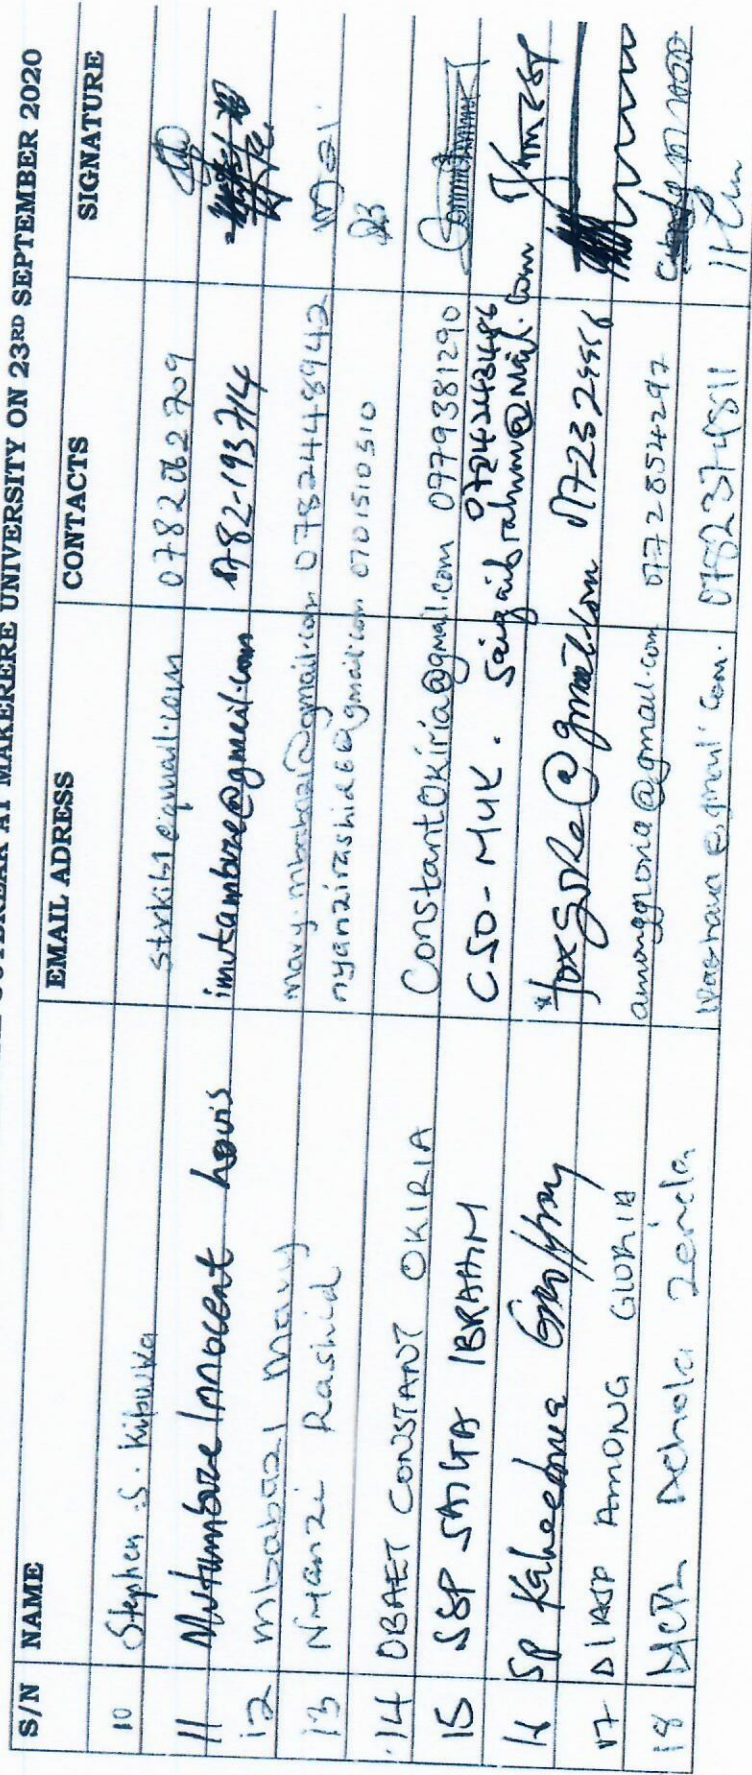 OUTBREAK AT MAKERERE UNIVERSITY ON 23RD SEPTEMBER 2020
S/N NAME EMAIL ADRESS CONTACTS SIGNATURE
10 Stephen S. Kibuuka 0782062709
11 Mutambuze Innocent Louis imutambuze@gmail.com 0782-193714
12 mbabazi Mary mary.mbabazi@gmail.com 0782448942
13 Nyanzi Rashid nyanzirashid6@gmail.com 0701510510
14 OBAET CONSTANT OKIRIA ConstantOkiria@gmail.com 0779381290
15 SSP SAIGA IBRAHIM CSO-MUK. 0724243486
SP Geoffrey @gmail.com
17 D/AASP AMONG GLORIA amonggloria@gmail.com 0772854297
18 0782374811